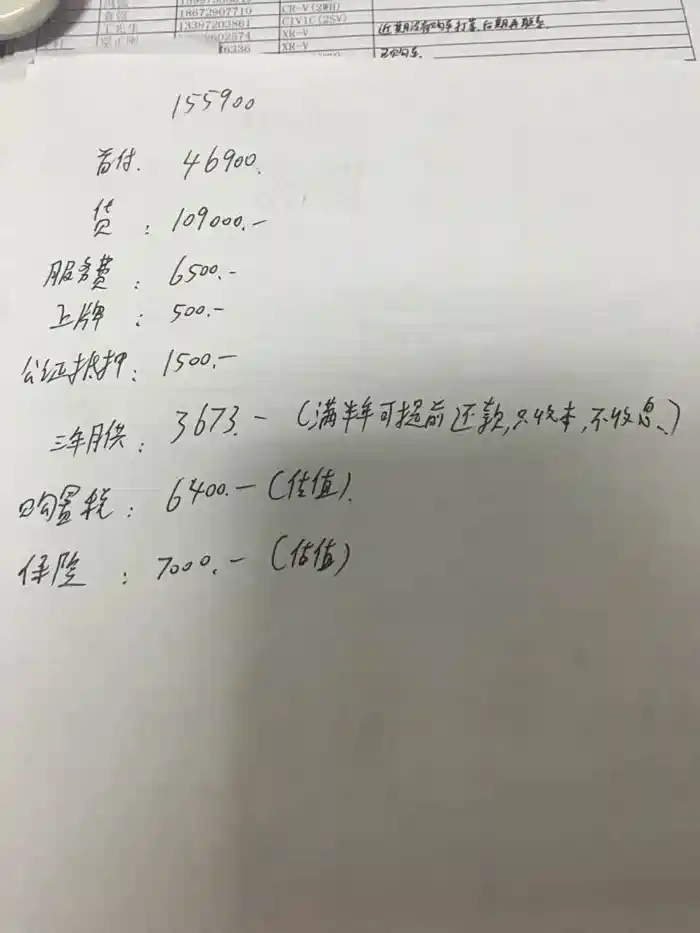 18672907710 CR-V(2WD)
13397203861 CIVIC(2SV)
602574 XR-V 近期没有购车打算,后期再联系.
6336 XR-V 已购车.
155900
首付. 46900.
贷: 109000.-
服务费: 6500.-
上牌: 500.-
公证抵押: 1500.-
三年月供: 3673.-(满半年可提前还款,只收本,不收息.)
购置税: 6400.-(估值).
保险: 7000.-(估值)